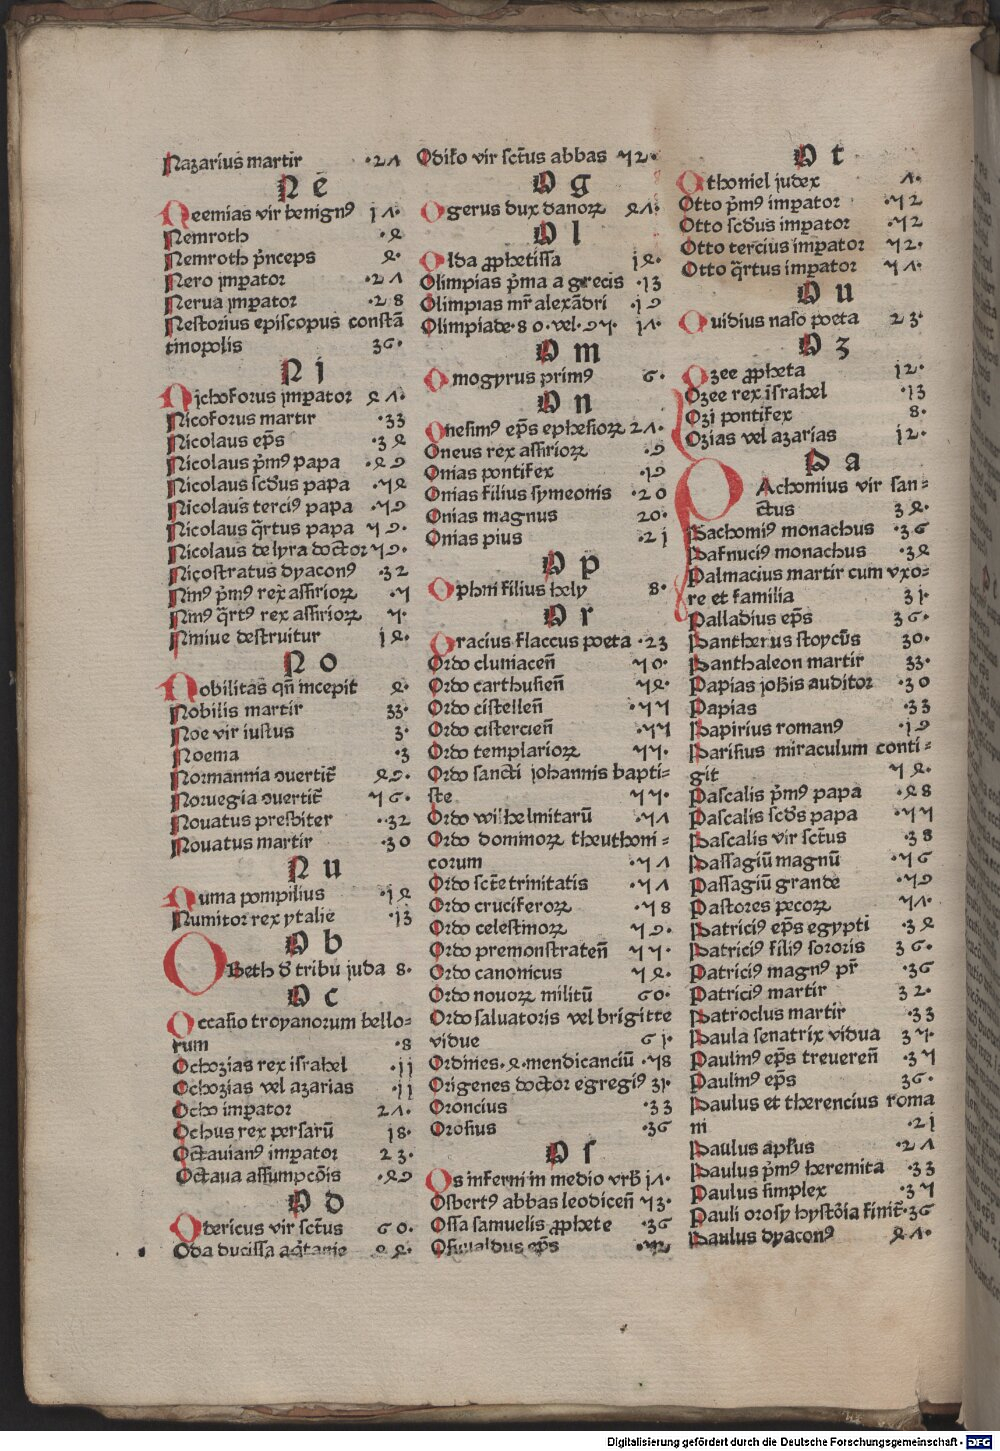 Nazarius martir .27
N e
Neemias vir benignꝰ 17.
Nemroth .4
Nemroth p̃nceps 4.
Nero imꝑator .27
Nerua imꝑator .28
Nestorius episcopus constã
tinopolis 36.
N i
Nichoforus imꝑator 47.
Nicoforus martir .33
Nicolaus ep̃s .34
Nicolaus p̃mꝰ papa .49
Nicolaus scd̃us papa .54
Nicolaus terciꝰ papa .59
Nicolaus q̃rtus papa 59.
Nicolaus de lyra doctor 59.
Nicostratus dyaconꝰ .32
Ninꝰ p̃mꝰ rex assirioꝝ .5
Ninꝰ q̃rtꝰ rex assirioꝝ 5.
Niniue destruitur 14.
N o
Nobilitas qñ incepit 4.
Nobilis martir 33.
Noe vir iustus 3.
Noema .3
Normannia ꝯuertit̃ 49.
Noruegia ꝯuertit̃ 56.
Nouatus presbiter .32
Nouatus martir .30
N u
Numa pompilius .14
Numitor rex ytalie .13
O b
OBeth d̃ tribu juda 8.
O c
Occasio troyanorum bello=
rum .8
Ochozias rex israhel .11
Ochozias vel azarias .11
Ocho imꝑator 27.
Ochus rex persarũ 18.
Octauianꝰ imꝑator 23.
Octaua assumpcõis .49
O d
Odericus vir sct̃us 60.
Oda ducissa aq̃tanie 44.
Odilo vir sct̃us abbas 52.
O g
Ogerus dux danoꝝ 47.
O l
Olda ꝓphetissa 14.
Olimpias p̃ma a grecis .13
Olimpias mr̃ alexãdri .19
Olimpiade.80.vel.95. 17.
O m
Omogyrus primꝰ 6.
O n
Onesimꝰ ep̃s ephesioꝝ 27.
Oneus rex assirioꝝ .9
Onias pontifex .19
Onias filius symeonis .20
Onias magnus 20.
Onias pius .21
O p
Ophni filius hely 8.
O r
Oracius flaccus poeta .23
Ordo cluniaceñ 50.
Ordo carthusieñ .54.
Ordo cistelleñ .55
Ordo cistercieñ .55
Ordo templarioꝝ 55.
Ordo sancti johannis bapti=
ste 55.
Ordo wilhelmitarũ .57
Ordo dominoꝝ theuthoni=
corum .57
Ordo sct̃e trinitatis .57
Ordo cruciferoꝝ .58
Ordo celestinoꝝ 59.
Ordo premonstrateñ 55.
Ordo canonicus 54.
Ordo nouoꝝ militũ 60.
Ordo saluatoris vel brigitte
vidue 61.
Ordines.4.mendicanciũ .58
Origenes doctor egregiꝰ 31.
Oroncius .33
Orosius .36
O s
Os inferni in medio vrb̃ 17.
Osbertꝰ abbas leodiceñ 53.
Ossa samuelis ꝓphete .36
Osiualdus ep̃s
O t
Othoniel judex 7.
Otto p̃mꝰ imꝑator .52
Otto scd̃us imꝑator .52
Otto tercius imꝑator 52.
Otto q̃rtus imꝑator 57.
O u
Ouidius naso poeta 23.
O z
Ozee ꝓpheta 12.
Ozee rex israhel .13
Ozi pontifex 8.
Ozias vel azarias 12.
P a
PAchomius vir san=
ctus 34.
Pachomiꝰ monachus .36
Pafnuciꝰ monachus .34
Palmacius martir cum vxo=
re et familia 31.
Palladius ep̃s 36.
Pantherus stoycus 30.
Panthaleon martir 33.
Papias joh̃is auditor .30
Papias .33
Papirius romanꝰ .19
Parisius miraculum conti=
git 54.
Pascalis p̃mꝰ papa .48
Pascalis scd̃s papa .55
Pascalis vir sct̃us .38
Passagiũ magnũ .56
Passagiũ grande .59
Pastores pecoꝝ 57.
Patriciꝰ ep̃s egypti .34
Patriciꝰ filiꝰ sororis 36.
Patriciꝰ magnꝰ pr̃ .36
Patriciꝰ martir 32.
Patroclus martir .33
Paula senatrix vidua 35.
Paulinꝰ ep̃s treuereñ .35
Paulinꝰ ep̃s 36.
Paulus et therencius roma
ni .21
Paulus apl̃us .27
Paulus p̃mꝰ heremita .33
Paulus simplex .35
Pauli orosy hystõia finit̃ .36
Paulus dyaconꝰ 47.
Digitalisierung gefördert durch die Deutsche Forschungsgemeinschaft - DFG